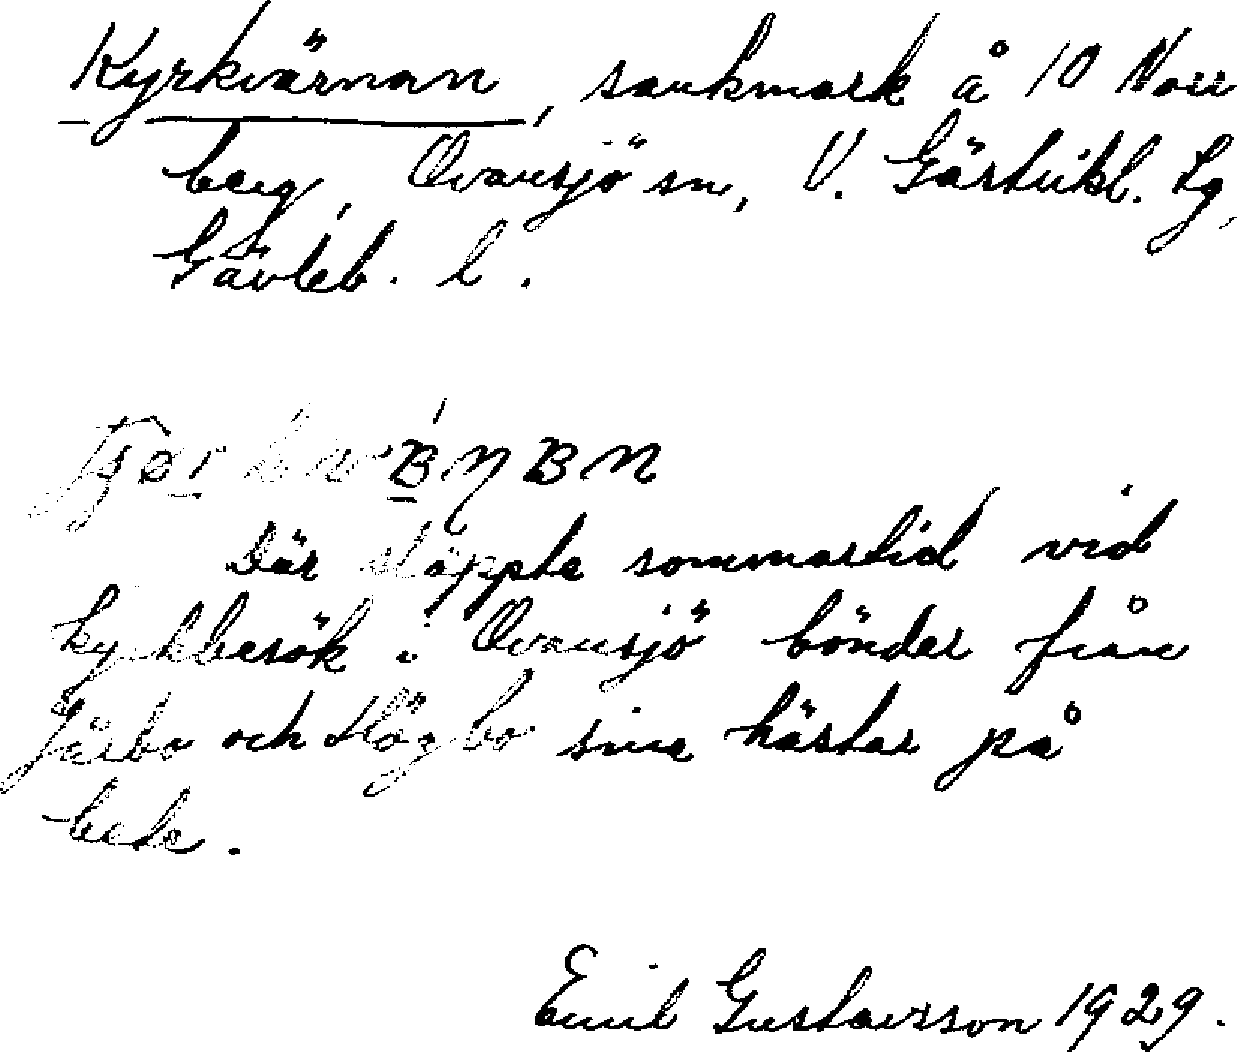 Kyrkvärnan, sankmark å 10 Norr
berg, Ovansjö sn, V. Gästrikl. tg,
Gävleb. l.
Där släppte sommartid vid
kyrkbesök i Ovansjö bönder från
Järbo och Högbo sina hästar på
bete.
Emil Gustavsson 1929.